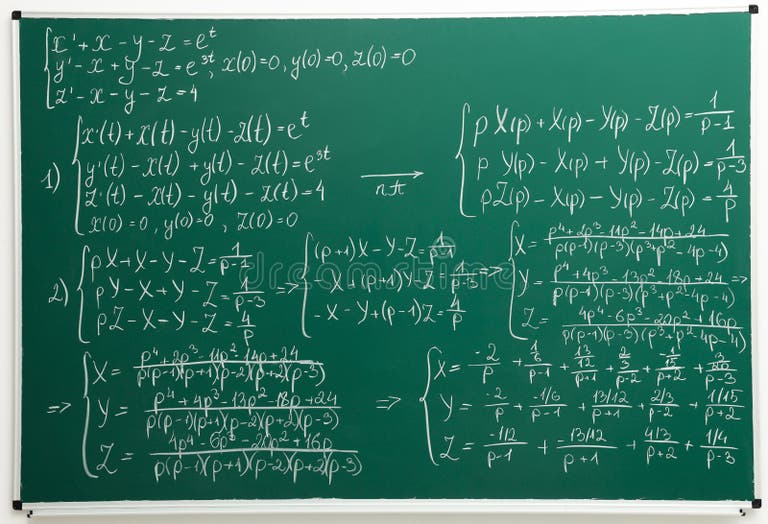 x' + x - y - z = e^t
y' - x + y - z = e^3t, x(0)=0, y(0)=0, z(0)=0
z' - x - y - z = 4
1) x'(t) + x(t) - y(t) - z(t) = e^t
y'(t) - x(t) + y(t) - z(t) = e^3t
z'(t) - x(t) - y(t) - z(t) = 4
x(0)=0, y(0)=0, z(0)=0
→
pX(p) + X(p) - Y(p) - Z(p) = 1/(p-1)
pY(p) - X(p) + Y(p) - Z(p) = 1/(p-3)
pZ(p) - X(p) - Y(p) - Z(p) = 4/p
2) pX + X - Y - Z = 1/(p-1)
pY - X + Y - Z = 1/(p-3)
pZ - X - Y - Z = 4/p
=>
(p+1)X - Y - Z = 1/(p-1)
-X + (p+1)Y - Z = 1/(p-3)
-X - Y + (p-1)Z = 4/p
=>
X = (p^4 + 2p^3 - 11p^2 - 14p + 24)/(p(p-1)(p-3)(p^3+p^2-4p-4))
Y = (p^4 + 4p^3 - 13p^2 - 18p + 24)/(p(p-1)(p-3)(p^3+p^2-4p-4)) =>
Z = (4p^4 - 6p^3 - 20p^2 + 16p)/(p(p-1)(p-3)(p^3+p^2-4p-4))
=> X = (p^4 + 2p^3 - 11p^2 - 14p + 24)/(p(p-1)(p+1)(p-2)(p+2)(p-3))
Y = (p^4 + 4p^3 - 13p^2 - 18p + 24)/(p(p-1)(p+1)(p-2)(p+2)(p-3))
Z = (4p^4 - 6p^3 - 20p^2 + 16p)/(p(p-1)(p+1)(p-2)(p+2)(p-3))
=>
X = -2/p + 1/6/(p-1) + 13/12/(p+1) + 2/3/(p-2) + 1/15/(p+2) + 3/20/(p-3)
Y = -2/p + -1/6/(p-1) + 13/12/(p+1) + 2/3/(p-2) + 1/15/(p+2)
Z = -1/2/(p-1) + -13/12/(p+1) + 4/3/(p+2) + 1/4/(p-3)
dreamstime.com